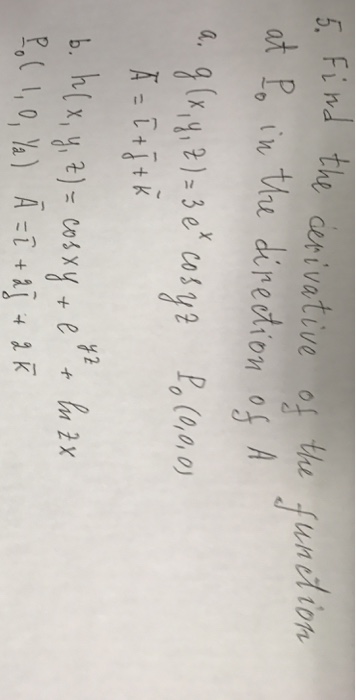 5. Find the derivative of the function
at P₀ in the direction of A
a. g(x,y,z)=3eˣ cosyz P₀(0,0,0)
Ā = ī+j̄+k̄
b. h(x,y,z)=cosxy + eʸᶻ + ln zx
P₀(1,0,½) Ā = ī + 2j̄ + 2k̄